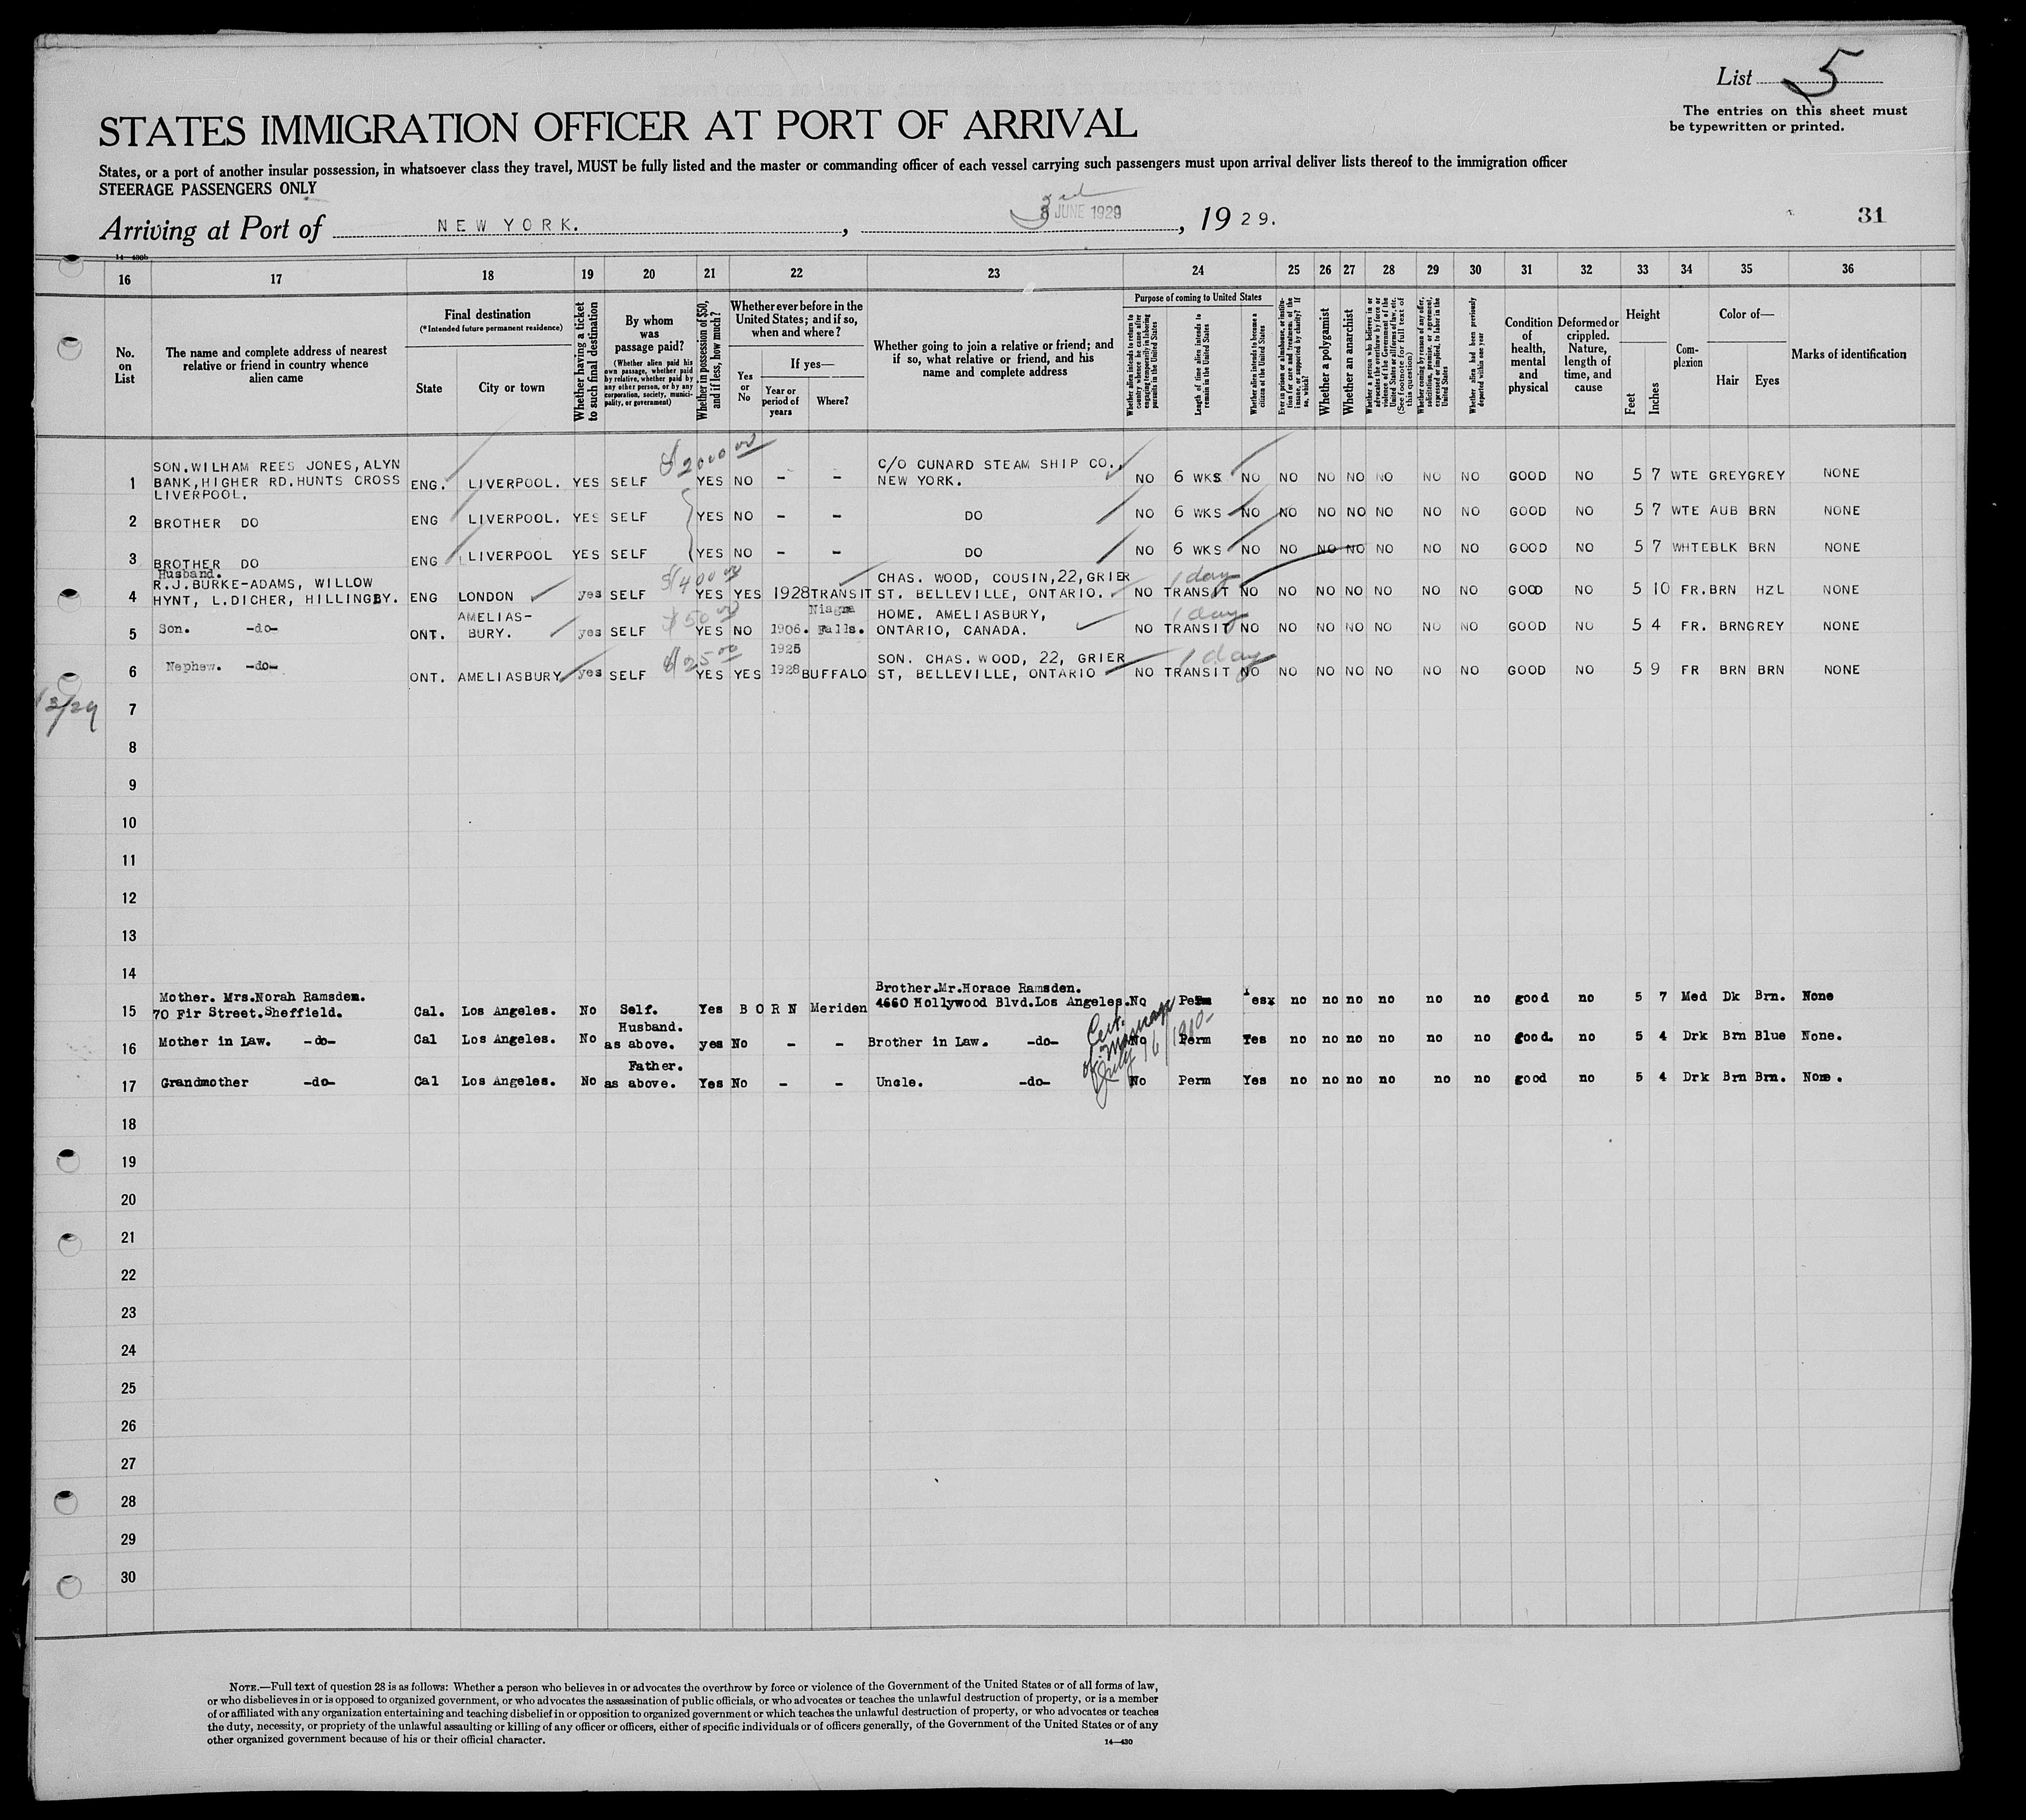 List 5
The entries on this sheet must
be typewritten or printed.
STATES IMMIGRATION OFFICER AT PORT OF ARRIVAL
States, or a port of another insular possession, in whatsoever class they travel, MUST be fully listed and the master or commanding officer of each vessel carrying such passengers must upon arrival deliver lists thereof to the immigration officer
STEERAGE PASSENGERS ONLY
Arriving at Port of NEW YORK. , 3rd JUNE 1929 , 1929.
31
14—430b
16 17 18 19 20 21 22 23 24 25 26 27 28 29 30 31 32 33 34 35 36
No. on List
The name and complete address of nearest relative or friend in country whence alien came
Final destination
(*Intended future permanent residence)
State
City or town
Whether having a ticket to such final destination
By whom was passage paid?
(Whether alien paid his own passage, whether paid by relative, whether paid by any other person, or by any corporation, society, municipality, or government)
Whether in possession of $50, and if less, how much?
Whether ever before in the United States; and if so, when and where?
Yes or No
If yes—
Year or period of years
Where?
Whether going to join a relative or friend; and if so, what relative or friend, and his name and complete address
Purpose of coming to United States
Whether alien intends to return to country whence he came after engaging temporarily in laboring pursuits in the United States
Length of time alien intends to remain in the United States
Whether alien intends to become a citizen of the United States
Ever in prison or almshouse, or institution for care and treatment of the insane, or supported by charity? If so, which?
Whether a polygamist
Whether an anarchist
Whether a person who believes in or advocates the overthrow by force or violence of the Government of the United States or all forms of law, etc. (See footnote for full text of this question)
Whether coming by reason of any offer, solicitation, promise, or agreement, expressed or implied, to labor in the United States
Whether alien had been previously deported within one year
Condition of health, mental and physical
Deformed or crippled. Nature, length of time, and cause
Height
Feet
Inches
Complexion
Color of—
Hair
Eyes
Marks of identification
1 SON.WILHAM REES JONES, ALYN BANK, HIGHER RD. HUNTS CROSS LIVERPOOL. ENG. LIVERPOOL. YES SELF $2000 00 YES NO - - C/O CUNARD STEAM SHIP CO., NEW YORK. NO 6 WKS NO NO NO NO NO NO NO GOOD NO 5 7 WTE GREY GREY NONE
2 BROTHER DO ENG LIVERPOOL. YES SELF YES NO - - DO NO 6 WKS NO NO NO NO NO NO NO GOOD NO 5 7 WTE AUB BRN NONE
3 BROTHER DO ENG LIVERPOOL YES SELF YES NO - - DO NO 6 WKS NO NO NO NO NO NO NO GOOD NO 5 7 WHTE BLK BRN NONE
4 Husband. R.J.BURKE-ADAMS, WILLOW HYNT, L.DICHER, HILLINGBY. ENG LONDON yes SELF $400 00 YES YES 1928 TRANSIT CHAS. WOOD, COUSIN, 22, GRIER ST. BELLEVILLE, ONTARIO. NO 1 day TRANSIT NO NO NO NO NO NO NO GOOD NO 5 10 FR. BRN HZL NONE
5 Son. -do- ONT. AMELIAS-BURY. yes SELF $50 00 YES NO 1906. Niagra Falls. HOME. AMELIASBURY, ONTARIO, CANADA. NO 1 day TRANSIT NO NO NO NO NO NO NO GOOD NO 5 4 FR. BRN GREY NONE
6 Nephew. -do- ONT. AMELIASBURY yes SELF $25 00 YES YES 1925 1928 BUFFALO SON. CHAS. WOOD, 22, GRIER ST, BELLEVILLE, ONTARIO NO 1 day TRANSIT NO NO NO NO NO NO NO GOOD NO 5 9 FR BRN BRN NONE
7
8
9
10
11
12
13
14
15 Mother. Mrs.Norah Ramsden. 70 Fir Street.Sheffield. Cal. Los Angeles. No Self. Yes BORN Meriden Brother.Mr.Horace Ramsden. 4660 Hollywood Blvd.Los Angeles. No Perm Yesx no no no no no no good no 5 7 Med Dk Brn. None
16 Mother in Law. -do- Cal Los Angeles. No Husband. as above. yes No - - Brother in Law. -do- No Perm Yes no no no no no no good. no 5 4 Drk Brn Blue None.
17 Grandmother -do- Cal Los Angeles. No Father. as above. Yes No - - Uncle. -do- No Perm Yes no no no no no no good no 5 4 Drk Brn Brn. None.
Cert. of marriage July 16/1910-
18
19
20
21
22
23
24
25
26
27
28
29
30
NOTE.—Full text of question 28 is as follows: Whether a person who believes in or advocates the overthrow by force or violence of the Government of the United States or of all forms of law,
or who disbelieves in or is opposed to organized government, or who advocates the assassination of public officials, or who advocates or teaches the unlawful destruction of property, or is a member
of or affiliated with any organization entertaining and teaching disbelief in or opposition to organized government or which teaches the unlawful destruction of property, or who advocates or teaches
the duty, necessity, or propriety of the unlawful assaulting or killing of any officer or officers, either of specific individuals or of officers generally, of the Government of the United States or of any
other organized government because of his or their official character.
14—430